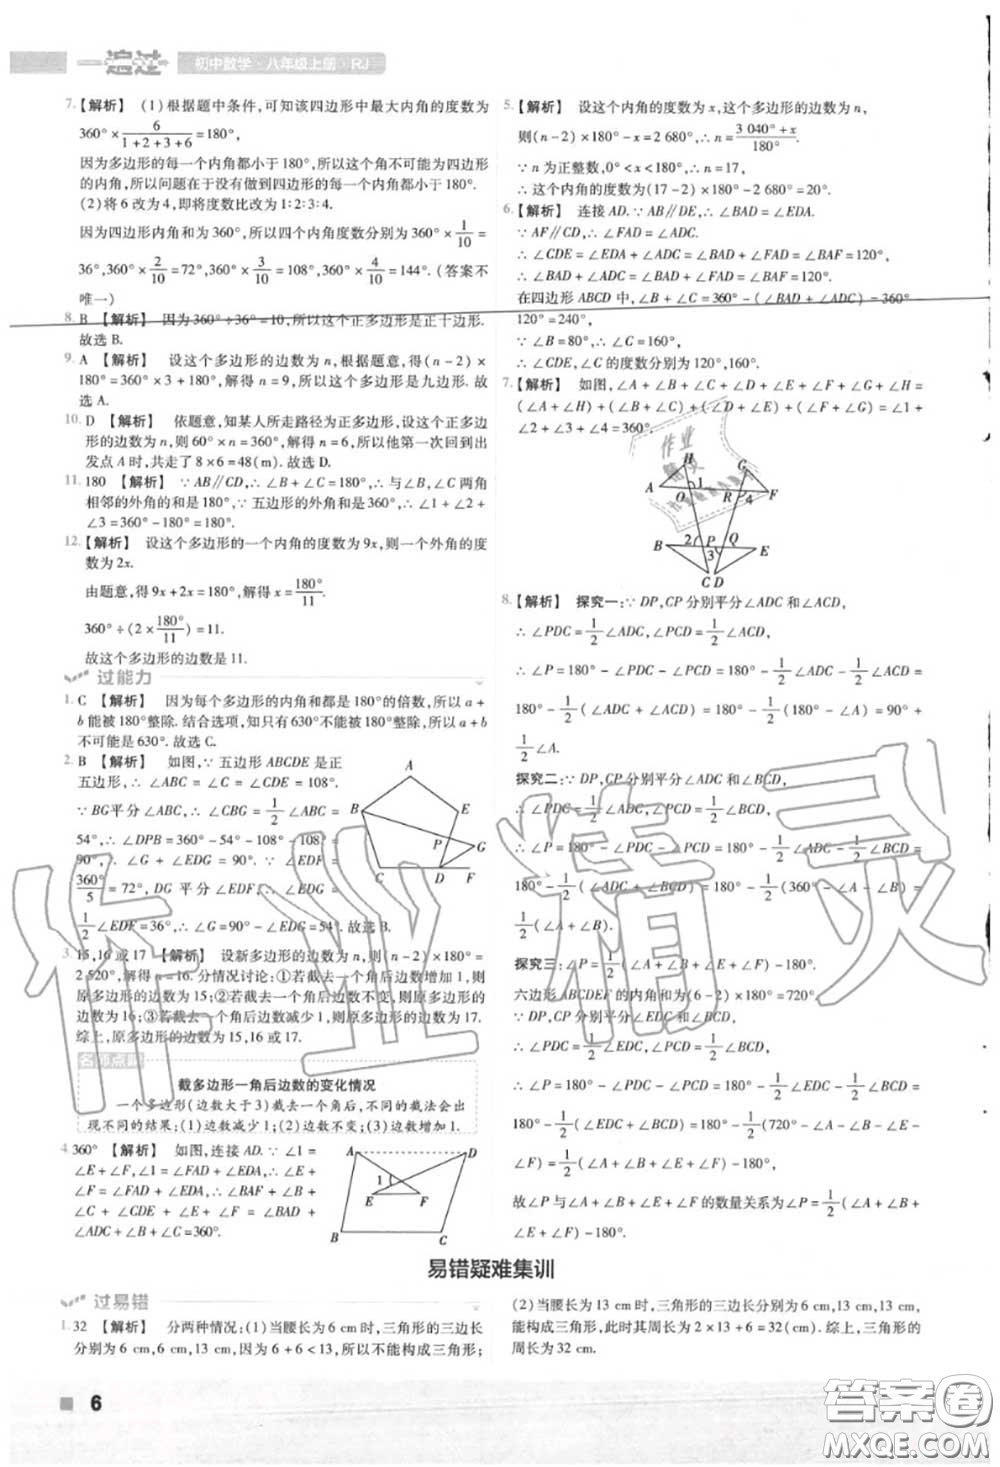 一遍过 初中数学·八年级上册·RJ
7.【解析】 (1)根据题中条件,可知该四边形中最大内角的度数为
360°×6/(1+2+3+6)=180°,
因为多边形的每一个内角都小于180°,所以这个角不可能为四边形
的内角,所以问题在于没有做到四边形的内角都小于180°.
(2)将6改为4,即将度数比改为1∶2∶3∶4.
因为四边形内角和为360°,所以四个内角度数分别为360°×1/10=
36°,360°×2/10=72°,360°×3/10=108°,360°×4/10=144°.(答案不
唯一)
8. B 【解析】 因为360°÷36°=10,所以这个正多边形是正十边形.
故选B.
9. A 【解析】 设这个多边形的边数为n,根据题意,得(n-2)×
180°=360°×3+180°,解得n=9,所以这个多边形是九边形.故
选A.
10. D 【解析】 依题意,知某人所走路径为正多边形,设这个正多边
形的边数为n,则60°×n=360°,解得n=6,所以他第一次回到出
发点A时,共走了8×6=48(m).故选D.
11. 180 【解析】 ∵AB∥CD,∴∠B+∠C=180°,∴与∠B,∠C两角
相邻的外角的和是180°,∵五边形的外角和是360°,∴∠1+∠2+
∠3=360°-180°=180°.
12.【解析】 设这个多边形的一个内角的度数为9x,则一个外角的度
数为2x.
由题意,得9x+2x=180°,解得x=180°/11.
360°÷(2×180°/11)=11.
故这个多边形的边数是11.
过能力
1. C 【解析】 因为每个多边形的内角和都是180°的倍数,所以a+
b能被180°整除.结合选项,知只有630°不能被180°整除,所以a+b
不可能是630°.故选C.
2. B 【解析】 如图,∵五边形ABCDE是正
五边形,∴∠ABC=∠C=∠CDE=108°.
∵BG平分∠ABC,∴∠CBG=1/2∠ABC=
54°,∴∠DPB=360°-54°-108°-108°=
90°,∴∠G+∠EDG=90°.∵∠EDF=
360°/5=72°,DG平分∠EDF,∴∠EDG=
1/2∠EDF=36°,∴∠G=90°-∠EDG=54°.故选B.
A
B
E
P
G
C
D
F
3. 15,16或17 【解析】 设新多边形的边数为n,则(n-2)×180°=
2 520°,解得n=16.分情况讨论:①若截去一个角后边数增加1,则
原多边形的边数为15;②若截去一个角后边数不变,则原多边形的
边数为16;③若截去一个角后边数减少1,则原多边形的边数为17.
综上,原多边形的边数为15,16或17.
名师点睛
截多边形一角后边数的变化情况
一个多边形(边数大于3)截去一个角后,不同的截法会出
现不同的结果:(1)边数减少1;(2)边数不变;(3)边数增加1.
4. 360° 【解析】 如图,连接AD.∵∠1=
∠E+∠F,∠1=∠FAD+∠EDA,∴∠E+
∠F=∠FAD+∠EDA,∴∠BAF+∠B+
∠C+∠CDE+∠E+∠F=∠BAD+
∠ADC+∠B+∠C=360°.
A
D
1
E
F
B
C
5.【解析】 设这个内角的度数为x,这个多边形的边数为n,
则(n-2)×180°-x=2 680°,∴n=(3 040°+x)/180°.
∵n为正整数,0°<x<180°,∴n=17,
∴这个内角的度数为(17-2)×180°-2 680°=20°.
6.【解析】 连接AD.∵AB∥DE,∴∠BAD=∠EDA.
∵AF∥CD,∴∠FAD=∠ADC.
∴∠CDE=∠EDA+∠ADC=∠BAD+∠FAD=∠BAF=120°,
∴∠BAD+∠ADC=∠BAD+∠FAD=∠BAF=120°.
在四边形ABCD中,∠B+∠C=360°-(∠BAD+∠ADC)=360°-
120°=240°,
∵∠B=80°,∴∠C=160°,
∴∠CDE,∠C的度数分别为120°,160°.
7.【解析】 如图,∠A+∠B+∠C+∠D+∠E+∠F+∠G+∠H=
(∠A+∠H)+(∠B+∠C)+(∠D+∠E)+(∠F+∠G)=∠1+
∠2+∠3+∠4=360°.
H
G
A
O
1
R
4
F
B
2
P
Q
3
E
C D
8.【解析】 探究一:∵DP,CP分别平分∠ADC和∠ACD,
∴∠PDC=1/2∠ADC,∠PCD=1/2∠ACD,
∴∠P=180°-∠PDC-∠PCD=180°-1/2∠ADC-1/2∠ACD=
180°-1/2(∠ADC+∠ACD)=180°-1/2(180°-∠A)=90°+
1/2∠A.
探究二:∵DP,CP分别平分∠ADC和∠BCD,
∴∠PDC=1/2∠ADC,∠PCD=1/2∠BCD,
∴∠P=180°-∠PDC-∠PCD=180°-1/2∠ADC-1/2∠BCD=
180°-1/2(∠ADC+∠BCD)=180°-1/2(360°-∠A-∠B)=
1/2(∠A+∠B).
探究三:∠P=1/2(∠A+∠B+∠E+∠F)-180°.
六边形ABCDEF的内角和为(6-2)×180°=720°.
∵DP,CP分别平分∠EDC和∠BCD,
∴∠PDC=1/2∠EDC,∠PCD=1/2∠BCD,
∴∠P=180°-∠PDC-∠PCD=180°-1/2∠EDC-1/2∠BCD=
180°-1/2(∠EDC+∠BCD)=180°-1/2(720°-∠A-∠B-
∠E-∠F)=1/2(∠A+∠B+∠E+∠F)-180°,
故∠P与∠A+∠B+∠E+∠F的数量关系为∠P=1/2(∠A+∠B+
∠E+∠F)-180°.
易错疑难集训
过易错
1. 32 【解析】 分两种情况:(1)当腰长为6 cm时,三角形的三边长
分别为6 cm,6 cm,13 cm,因为6+6<13,所以不能构成三角形;
(2)当腰长为13 cm时,三角形的三边长分别为6 cm,13 cm,13 cm,
能构成三角形,此时其周长为2×13+6=32(cm).综上,三角形的
周长为32 cm.
6
作业精灵
答案圈
MXQE.COM